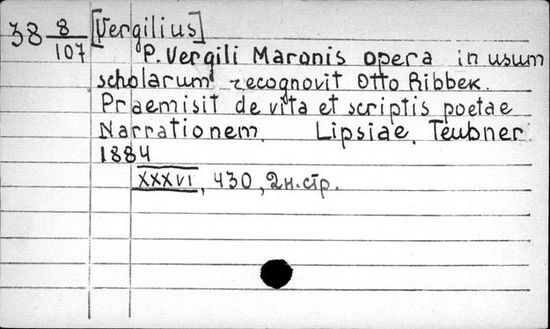 38 8/107 [Vergilius]
P. Vergili Maronis opera in usum
scholarum recognovit Otto Ribbek.
Praemisit de vita et scriptis poetae
Narrationem. Lipsiae, Teubner
1884
XXXVI, 430, 2н. стр.